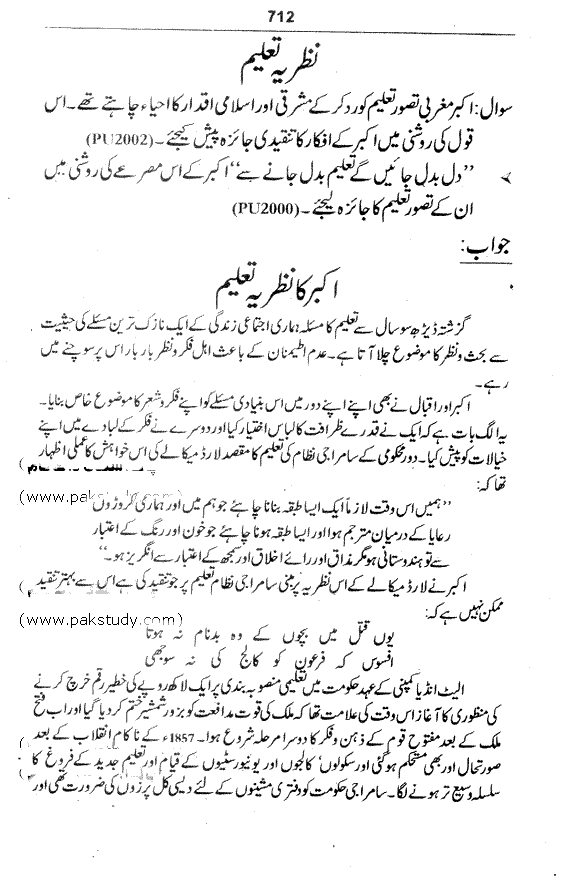 712
نظریہ تعلیم
سوال: اکبر مغربی تصور تعلیم کو رد کر کے مشرقی اور اسلامی اقدار کا احیاء چاہتے تھے۔ اس
قول کی روشنی میں اکبر کے افکار کا تنقیدی جائزہ پیش کیجئے۔ (PU2002)
”دل بدل جائیں گے تعلیم بدل جانے سے“ اکبر کے اس مصرعے کی روشنی میں
ان کے تصور تعلیم کا جائزہ لیجئے۔ (PU2000)
جواب:
اکبر کا نظریہ تعلیم
گزشتہ ڈیڑھ سو سال سے تعلیم کا مسئلہ ہماری اجتماعی زندگی کے ایک نازک ترین مسئلے کی حیثیت
سے بحث و نظر کا موضوع چلا آتا ہے۔ عدم اطمینان کے باعث اہل فکر و نظر بار بار اس پر سوچنے میں
رہے۔
اکبر اور اقبال نے بھی اپنے اپنے دور میں اس بنیادی مسئلے کو اپنے فکر و شعر کا موضوع خاص بنایا۔
یہ الگ بات ہے کہ ایک نے قدرے ظرافت کا لباس اختیار کیا اور دوسرے نے فکر کے لبادے میں اپنے
خیالات کو پیش کیا۔ دور محکومی کے سامراجی نظام کی تعلیم کا مقصد لارڈ میکالے کی اس خواہش کا عملی اظہار
تھا کہ:
”ہمیں اس وقت لازماً ایک ایسا طبقہ بنانا چاہئے جو ہم میں اور ہماری کروڑوں
(www.pakstudy.com)
رعایا کے درمیان مترجم ہو اور ایسا طبقہ ہونا چاہئے جو خون اور رنگ کے اعتبار
سے تو ہندوستانی ہو مگر مذاق اور رائے اخلاق اور سمجھ کے اعتبار سے انگریز ہو۔“
اکبر نے لارڈ میکالے کے اس نظریہ پر مبنی سامراجی نظام تعلیم پر جو تنقید کی ہے اس سے بہتر تنقید
ممکن نہیں ہے کہ:
(www.pakstudy.com)
یوں قتل میں بچوں کے وہ بدنام نہ ہوتا
افسوس کہ فرعون کو کالج کی نہ سوجھی
الیٹ انڈیا کمپنی کے عہد حکومت میں تعلیمی منصوبہ بندی پر ایک لاکھ روپے کی خطیر رقم خرچ کرنے
کی منظوری کا آغاز اس وقت کی علامت تھا کہ ملک کی قوت مدافعت کو بزور شمشیر ختم کر دیا گیا اور اب فتح
ملک کے بعد مفتوح قوم کے ذہن و فکر کا دوسرا مرحلہ شروع ہوا۔ 1857ء کے ناکام انقلاب کے بعد
صورتحال اور بھی مستحکم ہو گئی اور سکولوں' کالجوں اور یونیورسٹیوں کے قیام اور تعلیم جدید کے فروغ کا
سلسلہ وسیع تر ہونے لگا۔ سامراجی حکومت کو دفتری مشینوں کے لئے دیسی کل پرزوں کی ضرورت تھی اور